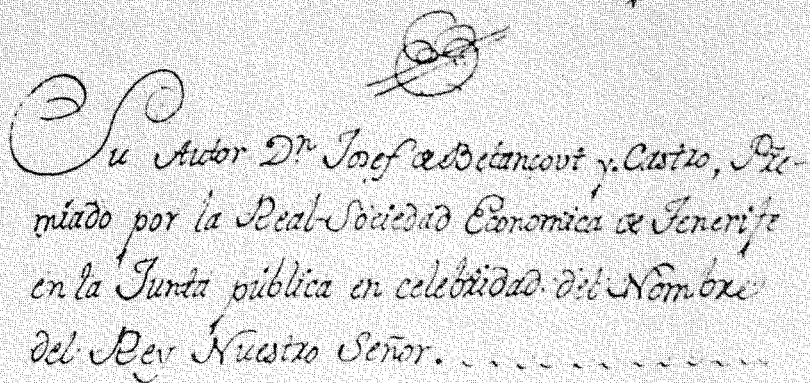 Su Autor Dn Josef de Betancourt y Castro, Pre-
miado por la Real Sociedad Economica de Tenerife
en la Junta pública en celebridad del Nombre
del Rey Nuestro Señor. . . . . . . . . . . . .